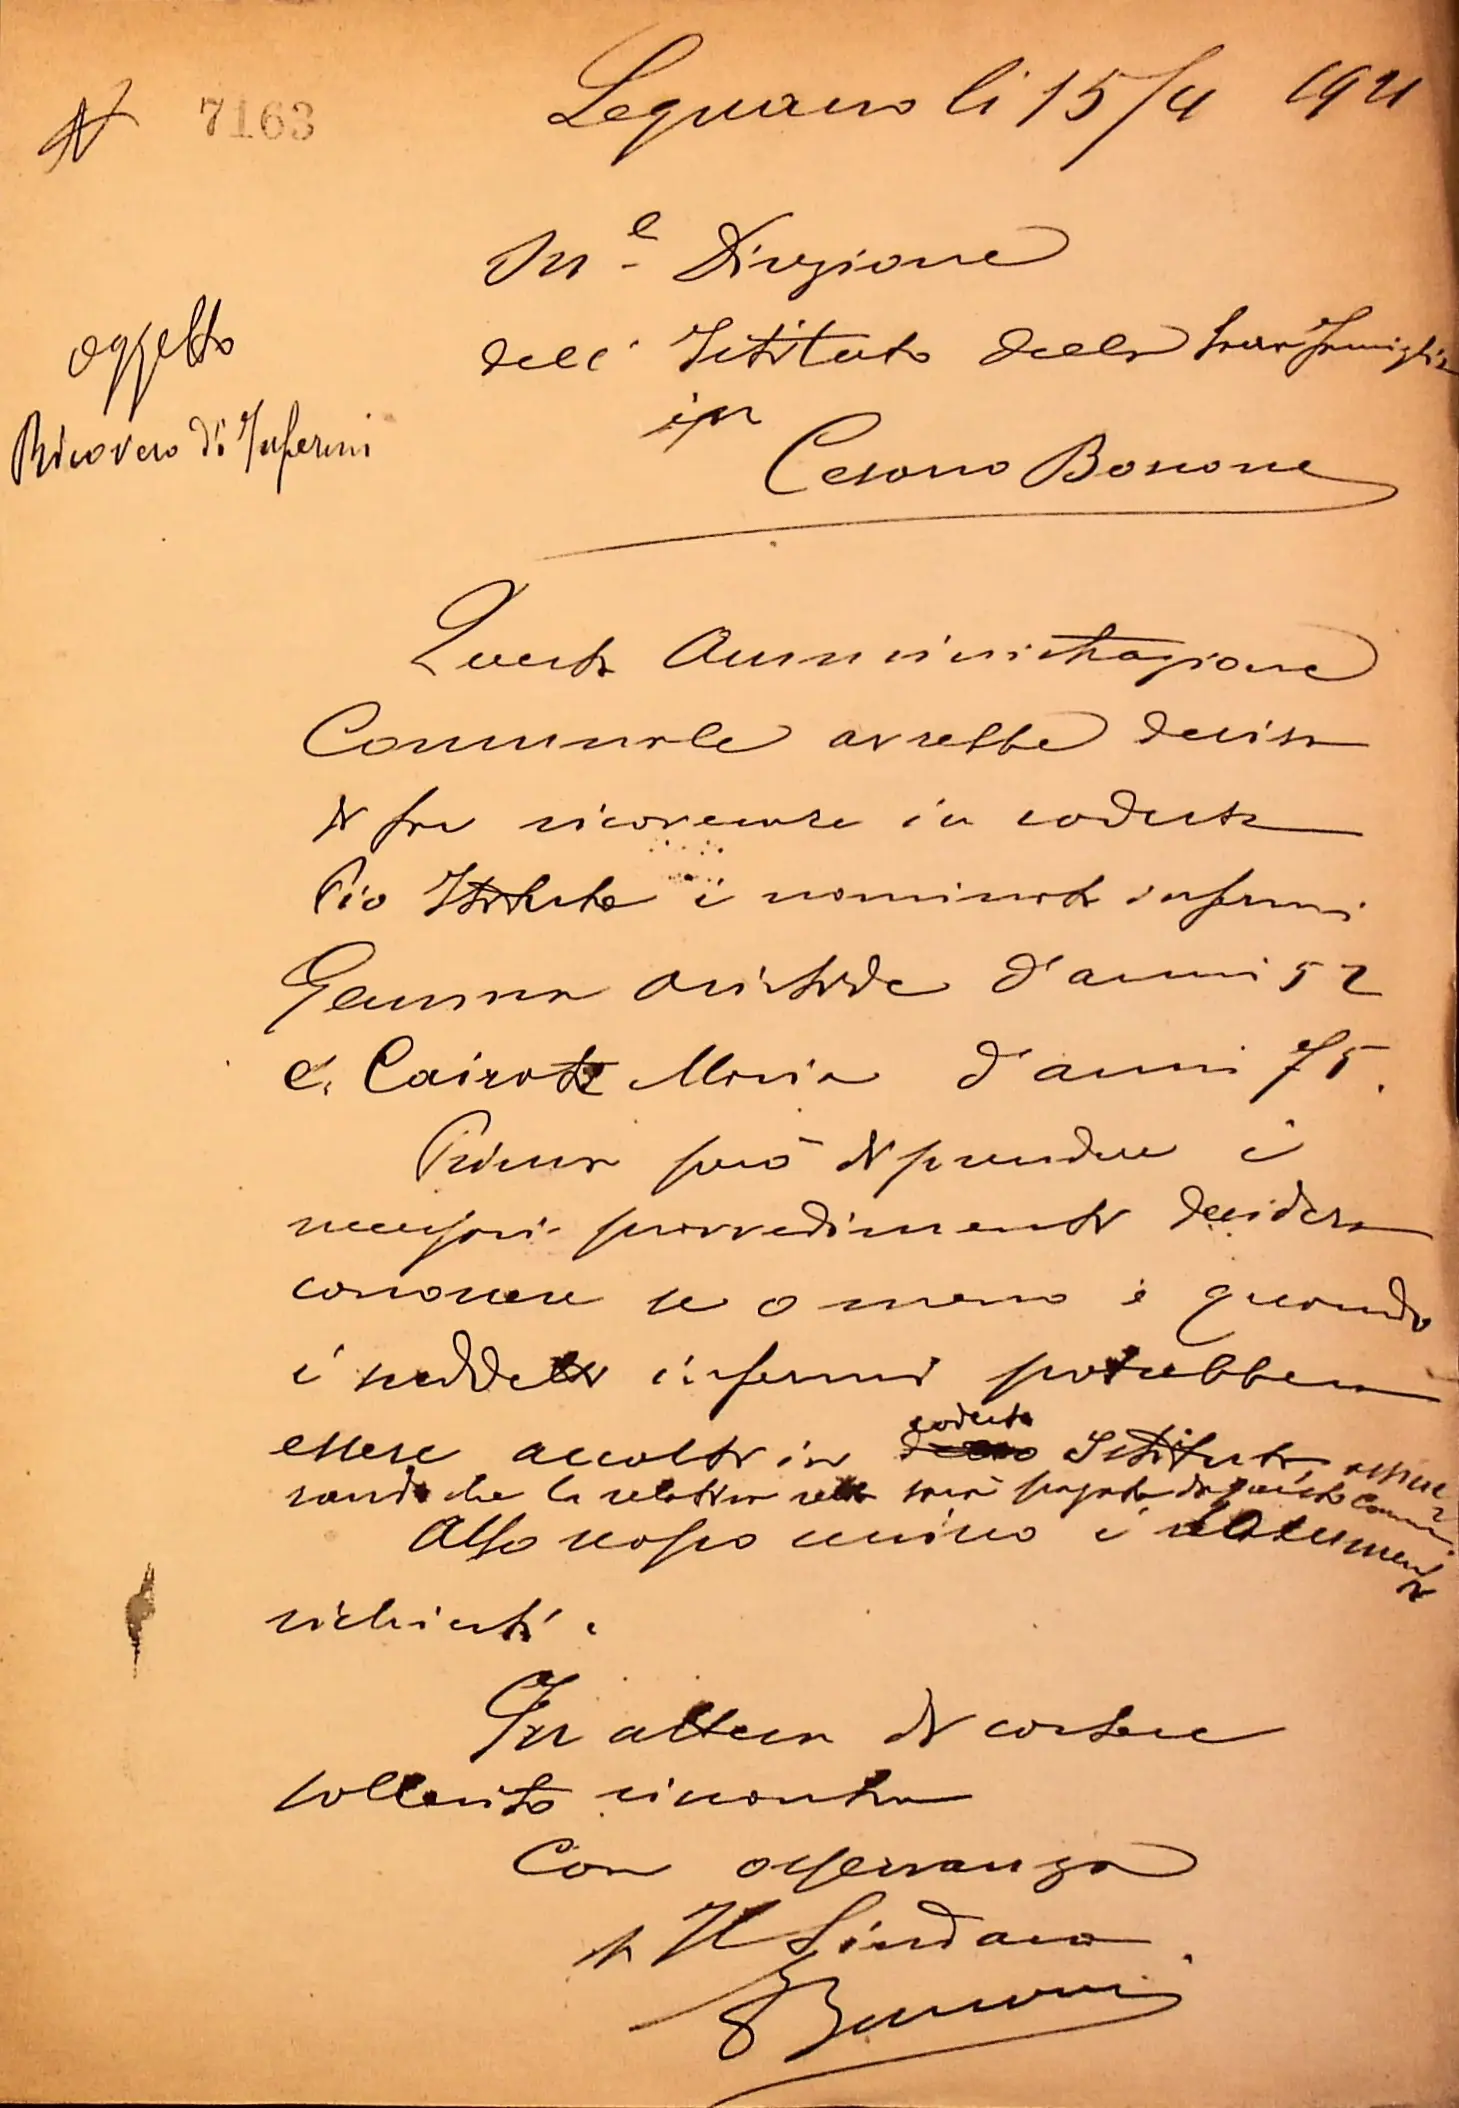 N 7163
Legnano li 15/4 1921
On.e Direzione
dell' Istituto della Sacra Famiglia
in
Cesano Boscone
oggetto
Ricovero di Infermi
Questa Amministrazione
Comunale avrebbe deciso
di far ricoverare in codesto
Pio Istituto i nominati infermi
Gemma Aristide d'anni 52
e Cairati Maria d'anni 75.
Prima però di prendere i
necessari provvedimenti desidera
conoscere se o meno e quando
i suddetti infermi potrebbero
essere accolti in codesto Istituto, assicu-
rando che la relativa retta sarà pagata da questo Comune.
Allo scopo unisco i documenti
richiesti.
In attesa di cortese
sollecito riscontro
Con osservanza
p Il Sindaco